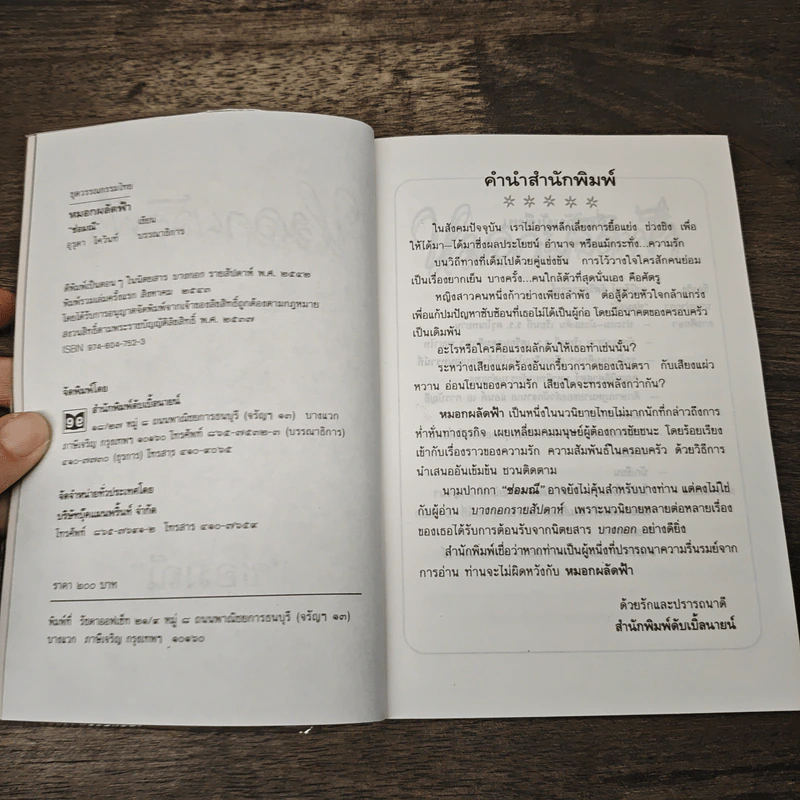 ชุดวรรณกรรมไทย
หมอกผลัดฟ้า
"ช่อมณี" เขียน
อุรุดา โควินท์ บรรณาธิการ
ตีพิมพ์เป็นตอน ๆ ในนิตยสาร บางกอก รายสัปดาห์ พ.ศ. ๒๕๔๒
พิมพ์รวมเล่มครั้งแรก สิงหาคม ๒๕๔๓
โดยได้รับการอนุญาตจัดพิมพ์จากเจ้าของลิขสิทธิ์ถูกต้องตามกฎหมาย
สงวนลิขสิทธิ์ตามพระราชบัญญัติลิขสิทธิ์ พ.ศ. ๒๕๓๗
ISBN 974-604-752-3
จัดพิมพ์โดย
สำนักพิมพ์ดับเบิ้ลนายน์
๑๘/๒๗ หมู่ ๘ ถนนพาณิชยการธนบุรี (จรัญฯ ๑๓) บางแวก
ภาษีเจริญ กรุงเทพฯ ๑๐๑๖๐ โทรศัพท์ ๘๖๕-๗๕๓๒-๓ (บรรณาธิการ)
๔๑๐-๗๗๓๐ (ธุรการ) โทรสาร ๔๑๐-๔๐๖๕
จัดจำหน่ายทั่วประเทศโดย
บริษัทบุ๊คแมนพริ้นท์ จำกัด
โทรศัพท์ ๘๖๕-๗๖๔๑-๒ โทรสาร ๔๑๐-๗๖๕๔
ราคา ๒๐๐ บาท
พิมพ์ที่ รัชดาออฟเซ็ท ๒๑/๔ หมู่ ๘ ถนนพาณิชยการธนบุรี (จรัญฯ ๑๓)
บางแวก ภาษีเจริญ กรุงเทพฯ ๑๐๑๖๐
คำนำสำนักพิมพ์
ในสังคมปัจจุบัน เราไม่อาจหลีกเลี่ยงการยื้อแย่ง ช่วงชิง เพื่อ
ให้ได้มา—ได้มาซึ่งผลประโยชน์ อำนาจ หรือแม้กระทั่ง...ความรัก
บนวิถีทางที่เต็มไปด้วยคู่แข่งขัน การไว้วางใจใครสักคนย่อม
เป็นเรื่องยากเย็น บางครั้ง...คนใกล้ตัวที่สุดนั่นเอง คือศัตรู
หญิงสาวคนหนึ่งก้าวย่างเพียงลำพัง ต่อสู้ด้วยหัวใจกล้าแกร่ง
เพื่อแก้ปมปัญหาซับซ้อนที่เธอไม่ได้เป็นผู้ก่อ โดยมีอนาคตของครอบครัว
เป็นเดิมพัน
อะไรหรือใครคือแรงผลักดันให้เธอทำเช่นนั้น?
ระหว่างเสียงแผดร้องอันเกรี้ยวกราดของเงินตรา กับเสียงแผ่ว
หวาน อ่อนโยนของความรัก เสียงใดจะทรงพลังกว่ากัน?
หมอกผลัดฟ้า เป็นหนึ่งในนวนิยายไทยไม่มากนักที่กล่าวถึงการ
ห้ำหั่นทางธุรกิจ เผยเหลี่ยมคมมนุษย์ผู้ต้องการชัยชนะ โดยร้อยเรียง
เข้ากับเรื่องราวของความรัก ความสัมพันธ์ในครอบครัว ด้วยวิธีการ
นำเสนออันเข้มข้น ชวนติดตาม
นามปากกา "ช่อมณี" อาจยังไม่คุ้นสำหรับบางท่าน แต่คงไม่ใช่
กับผู้อ่าน บางกอกรายสัปดาห์ เพราะนวนิยายหลายต่อหลายเรื่อง
ของเธอได้รับการต้อนรับจากนิตยสาร บางกอก อย่างดียิ่ง
สำนักพิมพ์เชื่อว่าหากท่านเป็นผู้หนึ่งที่ปรารถนาความรื่นรมย์จาก
การอ่าน ท่านจะไม่ผิดหวังกับ หมอกผลัดฟ้า
ด้วยรักและปรารถนาดี
สำนักพิมพ์ดับเบิ้ลนายน์